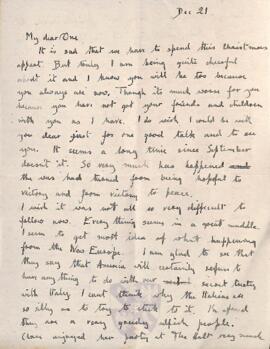 Dec 21
My dear One
It is sad that we have to spend this Christmas
apart. But truly I am being quite cheerful
about it and I know you will be too because
you always are now. Though it's much worse for you
because you have not got your friends and children
with you as I have. I do wish I could be with
you dear just for one good talk and to see
you. It seems a long time since September
doesn't it. So very much has happened and
the war had turned from being hopeful to
victory and from victory to peace.
I wish it was not all so very difficult to
follow now. Everything seems in a great muddle.
I seem to get most idea of what is happening
from the New Europe. I am glad to see that
they say that America will certainly refuse to
have anything to do with our secret treaty
with Italy. I can't think why the Italians are
so silly as to try to stick to it. I'm afraid
they are a very greedy selfish people.
enjoyed her party at The Salt very much